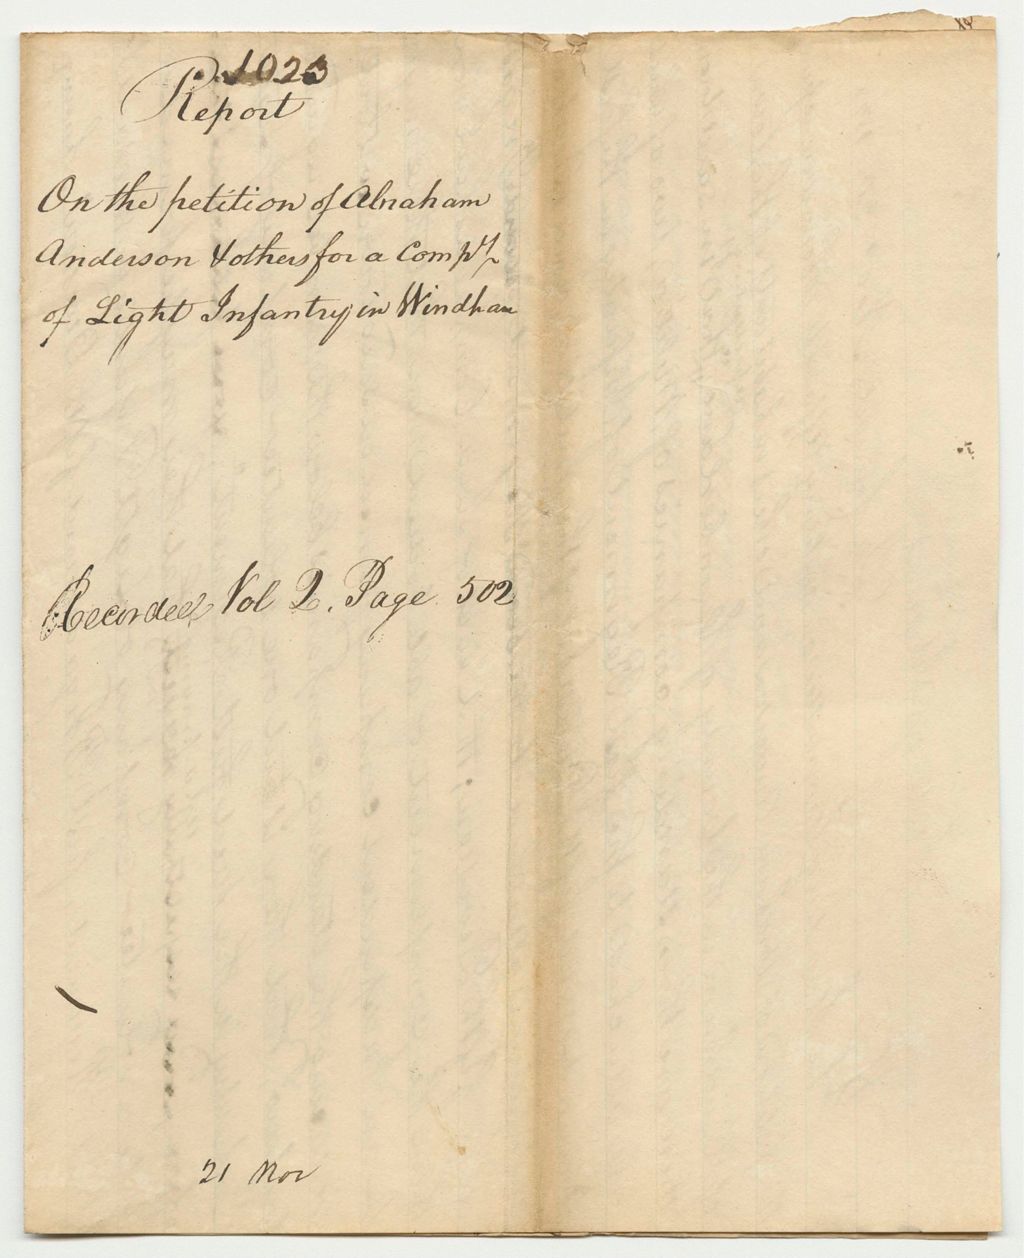 1023
Report
On the petition of Abraham
Anderson & others for a Compy
of Light Infantry in Windham
Recorded Vol 2. Page 502
21 Nov